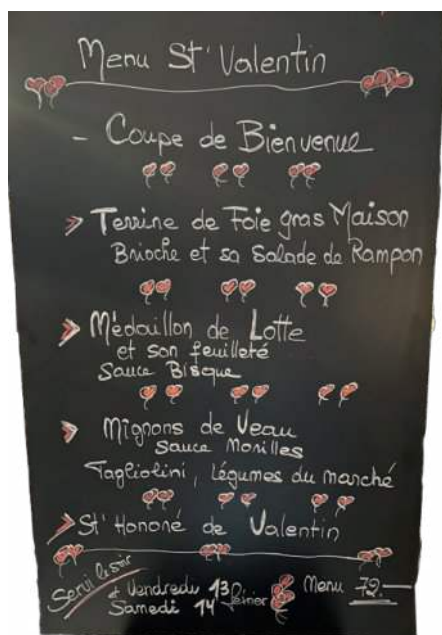 Menu St' Valentin
- Coupe de Bienvenue
Terrine de Foie gras Maison
Brioche et sa Salade de Rampon
Médaillon de Lotte
et son feuilleté
Sauce Bisque
Mignons de Veau
Sauce Morilles
Tagliolini, légumes du marché
St' Honoré de Valentin
Servi le soir
et Vendredi 13 février
Samedi 14
Menu 72.—